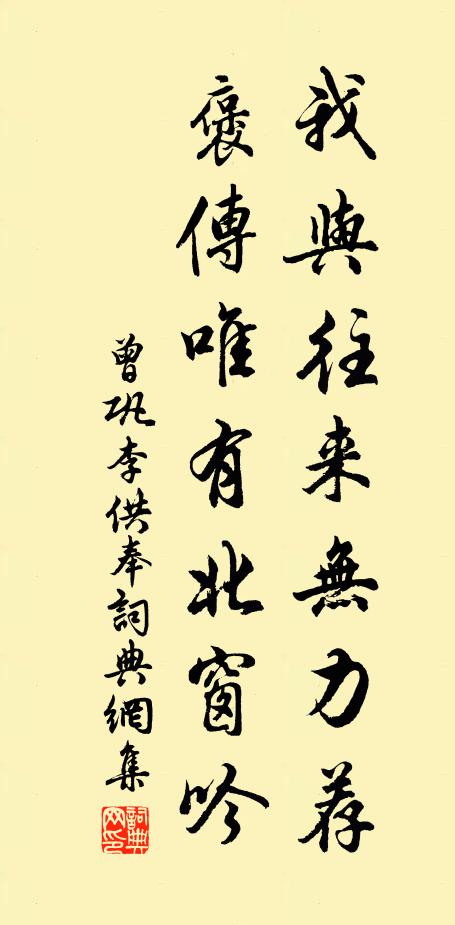 我與往来無力荐
褒傳唯有北窗吟
曾巩李供奉詞典網集
詞典网印